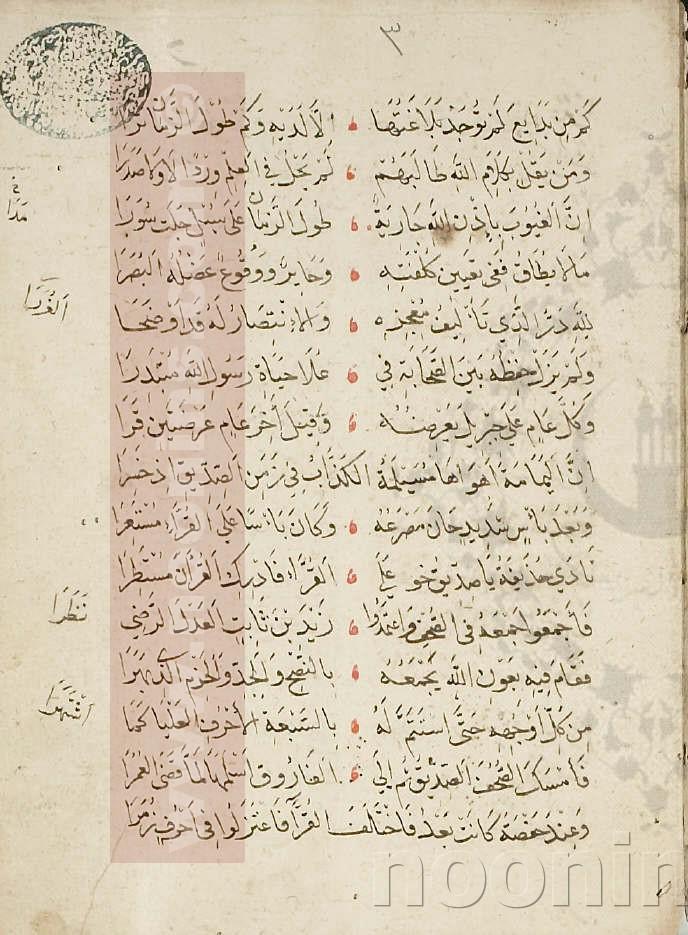 ٣
كم من بدايع لم توجد بلاغتها الا لديه وكم طول الزمان ترا
ومن يقل بكلام الله طالبهم لم يحل في العلم وردا لا ولا صدرا
مدا
ان الغيوب باذن الله جارية طول الزمان على سبل جلت سورا
ما لا يطاق ففي تعيين كلفته وجايز ووقوع عضلة البصرا
الغررا
لله در الذي تأليف معجزه والانتصار له قد اوضحا
ولم يزل حفظه بين الصحابة في علا حياة رسول الله مبتدرا
وكل عام على جبريل يعرضه وقيل آخر عام عرضتين قرا
ان اليمامة اهواها مسيلمة الكذاب في زمن الصديق اذ خسرا
وبعد بأس شديد حان مصرعه وكان بأسا على القراء مستعرا
نادى خذيفة يا صديق خو على القراء فادرك القرآن مستطرا
نظرا
فأجمعوا جمعه في الصحف واعتمدوا زيد بن ثابت العدل الرضي
فقام فيه بعون الله يجمعه بالنصح والجد والحزم الذي بهرا
اشتهرا
من كل اوجهه حتى استتم له بالسبعة الأحرف العليا كما
فأمسك الصحف الصديق ثم الى الفاروق اسلمها لما قضى العمرا
وعند حفصة كانت بعد فاختلف القرا فاعتزلوا في احرف زمرا
noonin